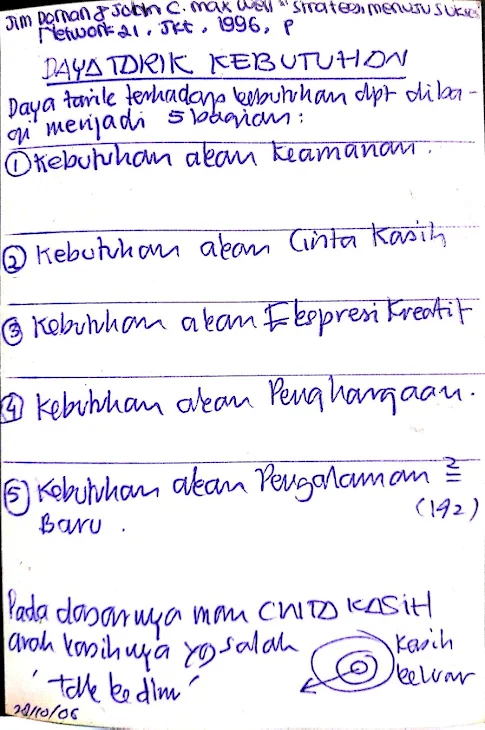 Jim Dornan & John C. Maxwell "Strategi menuju sukses
Network 21, Jkt, 1996, p
DAYA TARIK KEBUTUHAN
Daya tarik terhadap kebutuhan dpt diba-
gi menjadi 5 bagian:
① Kebutuhan akan Keamanan.
② Kebutuhan akan Cinta Kasih
③ Kebutuhan akan Ekspresi Kreatif
④ Kebutuhan akan Penghargaan.
⑤ Kebutuhan akan Pengalaman2
Baru. (192)
Pada dasarnya man CINTA KASIH
arah kasihnya yg salah
Kasih
keluar
'tdk ke dlm'
28/10/06